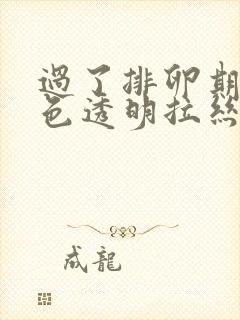 過了排卵期
色透明拉絲
成龍